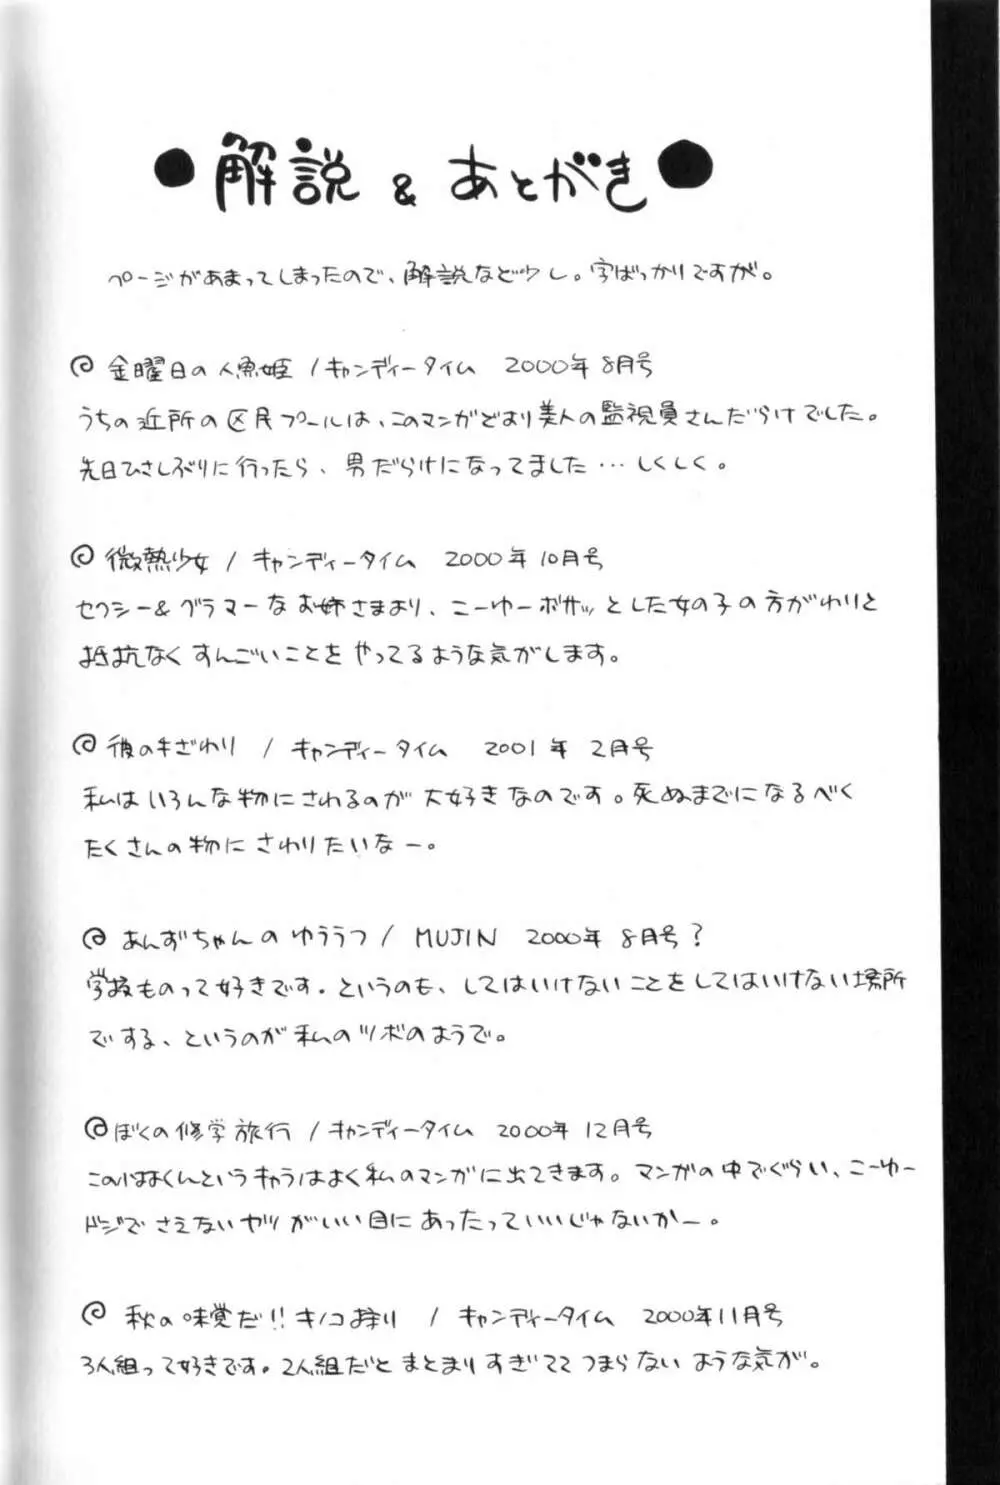 ●解説 & あとがき●
ページがあまってしまったので、解説など少し。字ばっかりですが。
金曜日の人魚姫 / キャンディータイム 2000年8月号
うちの近所の区民プールは、このマンガどおり美人の監視員さんだらけでした。
先日ひさしぶりに行ったら、男だらけになってました…しくしく。
微熱少女 / キャンディータイム 2000年10月号
セクシー&グラマーなお姉さまより、こーゆーボサッとした女の子の方がわりと
抵抗なくすんごいことをやってるような気がします。
彼の手ざわり / キャンディータイム 2001年 2月号
私はいろんな物にさわるのが大好きなのです。死ぬまでになるべく
たくさんの物にさわりたいなー。
あんずちゃんのゆううつ / MUJIN 2000年8月号?
学校ものって好きです。というのも、してはいけないことをしてはいけない場所
でする、というのが私のツボのようで。
ぼくの修学旅行 / キャンディータイム 2000年12月号
このはまくんというキャラはよく私のマンガに出てきます。マンガの中でぐらい、こーゆー
ドジでさえないヤツがいい目にあったっていいじゃないかー。
秋の味覚だ!!キノコ狩り / キャンディータイム 2000年11月号
3人組って好きです。2人組だとまとまりすぎててつまらないような気が。